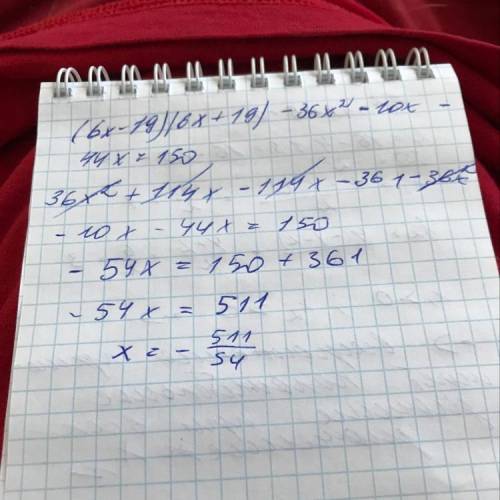 (6x-19)(6x+19) -36x² -10x -
44x = 150
36x² + 114x - 114x - 361 - 36x²
- 10x - 44x = 150
- 54x = 150 + 361
- 54x = 511
x = - 511/54